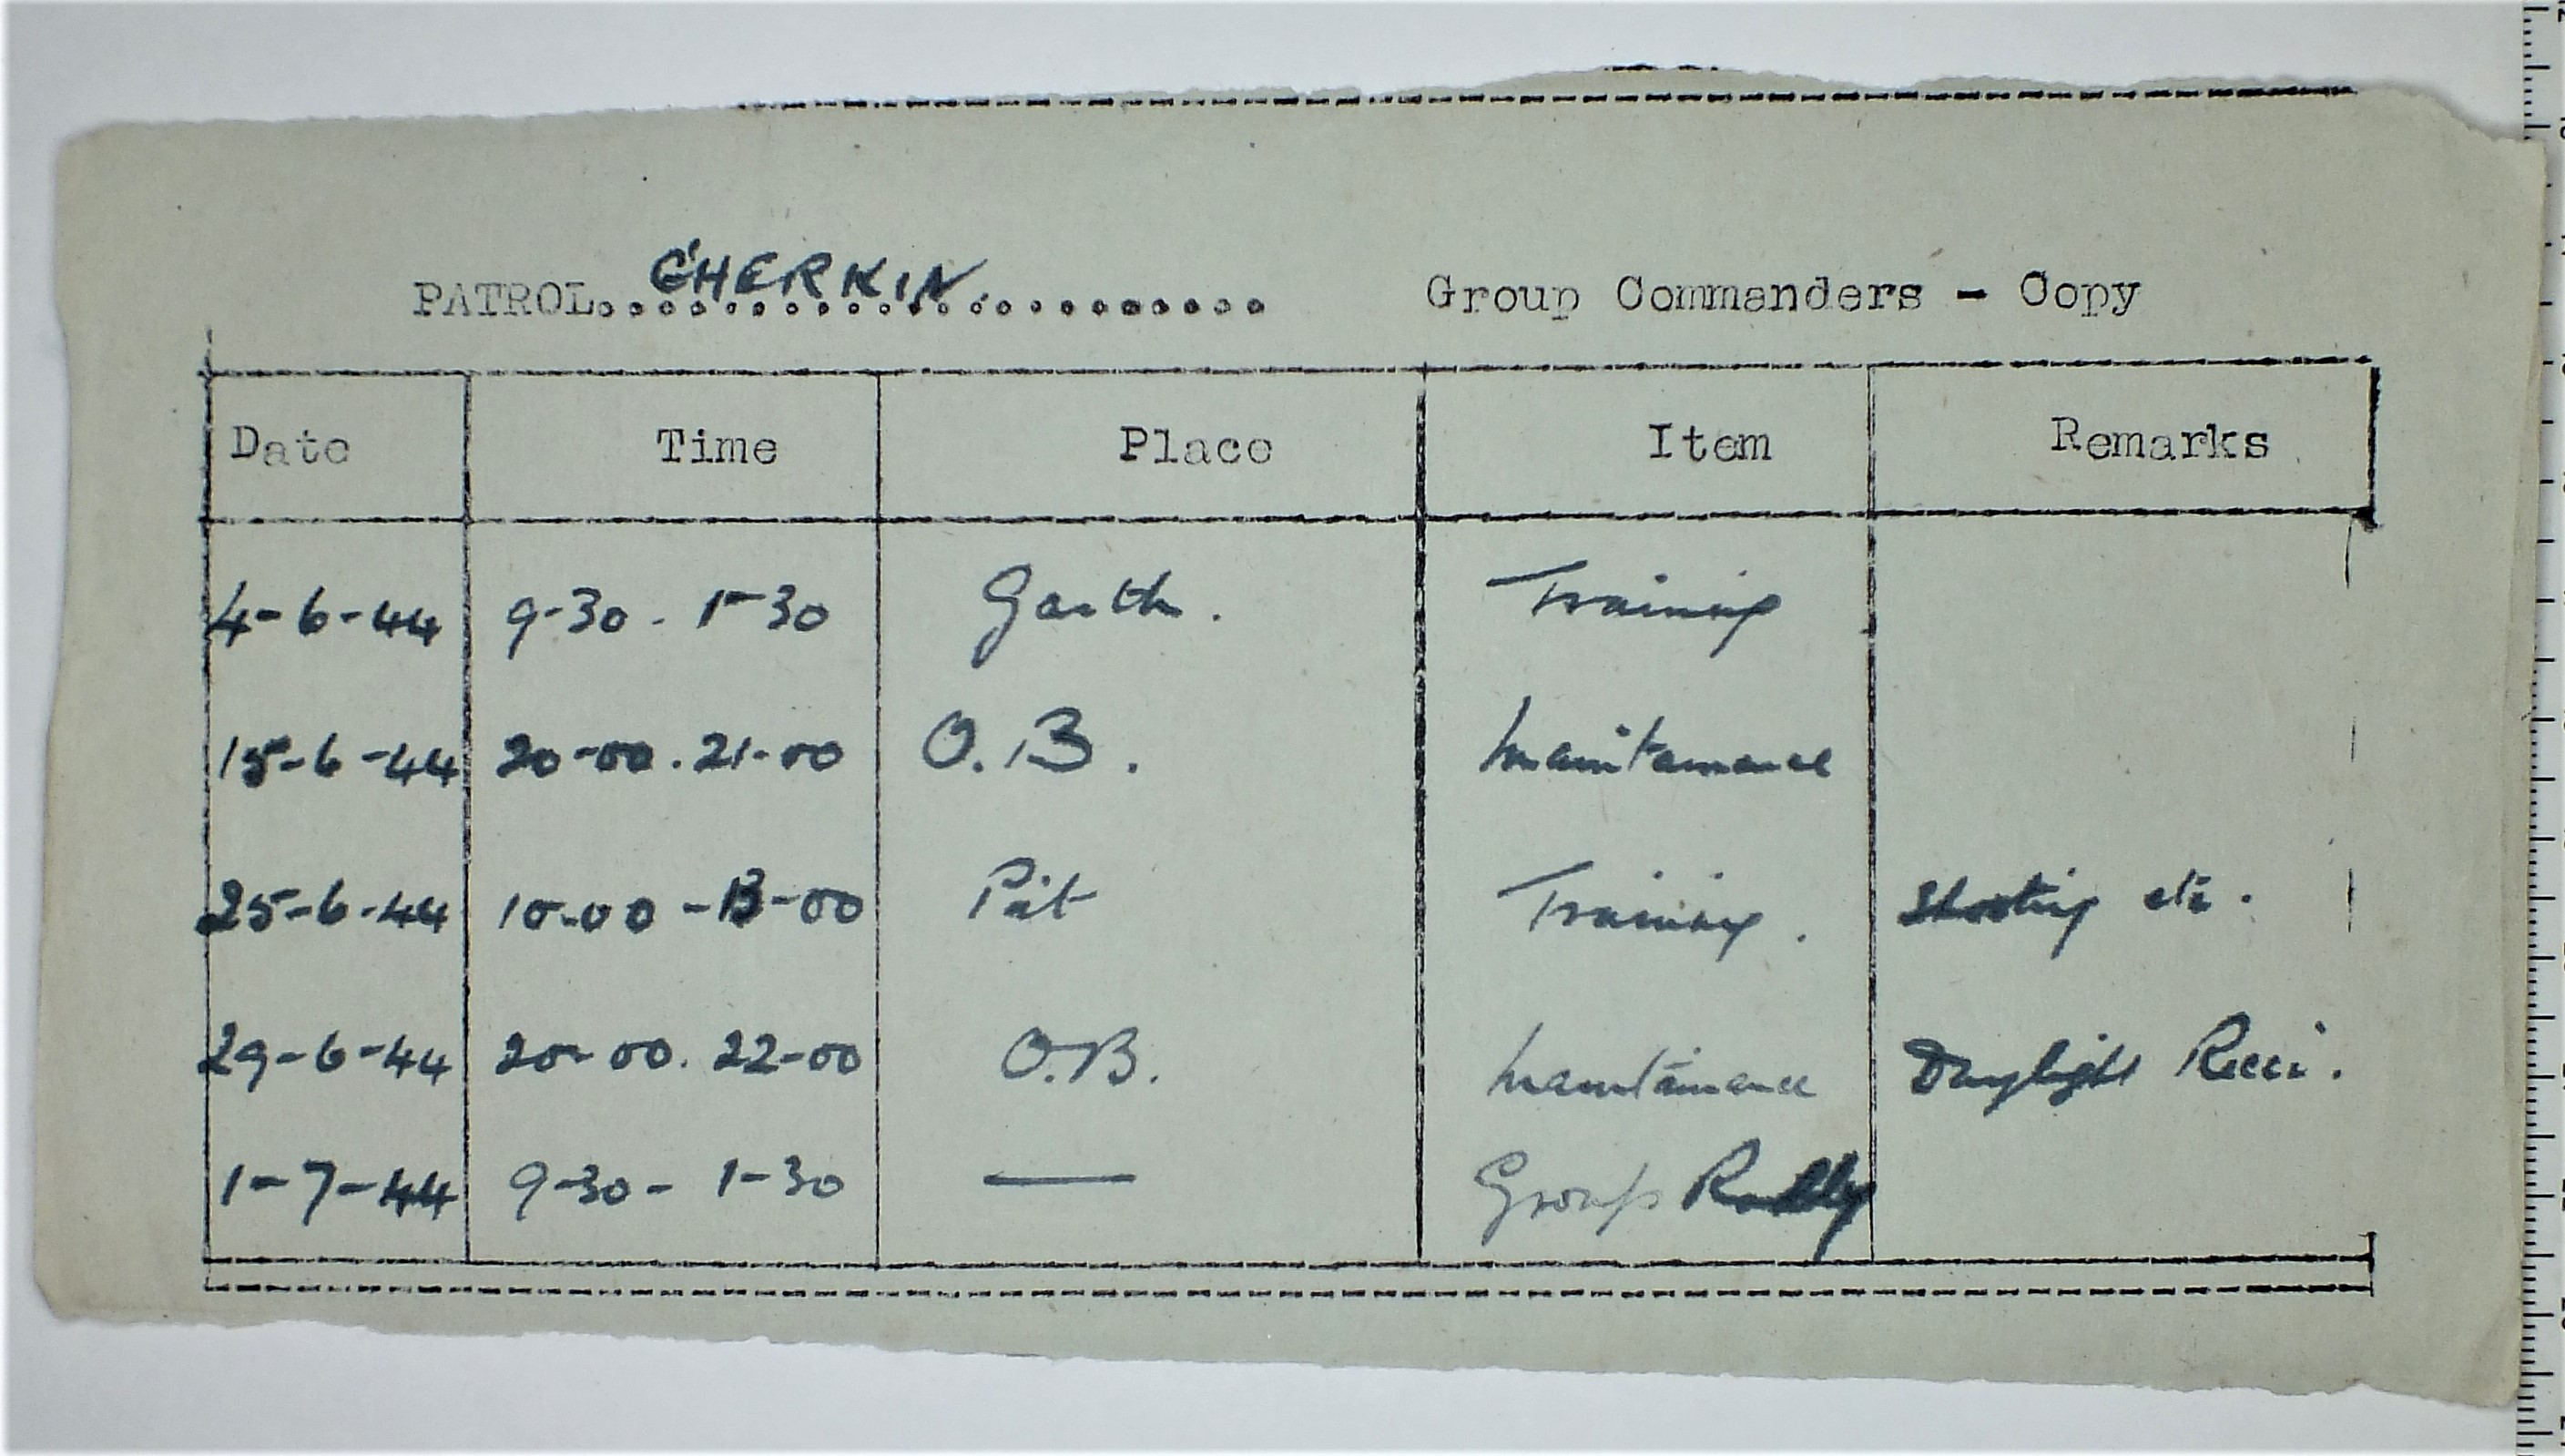 PATROL....................... GHERKIN. Group Commanders - Copy
Date Time Place Item Remarks
4-6-44 9-30 - 1-30 Garth. Training
15-6-44 20-00. 21-00 O.B. Maintainance
25-6-44 10-00 - 13-00 Pit Training. Shooting etc.
29-6-44 20-00. 22-00 O.B. Maintainance Daylight Recci.
1-7-44 9-30 - 1-30 — Group Rally